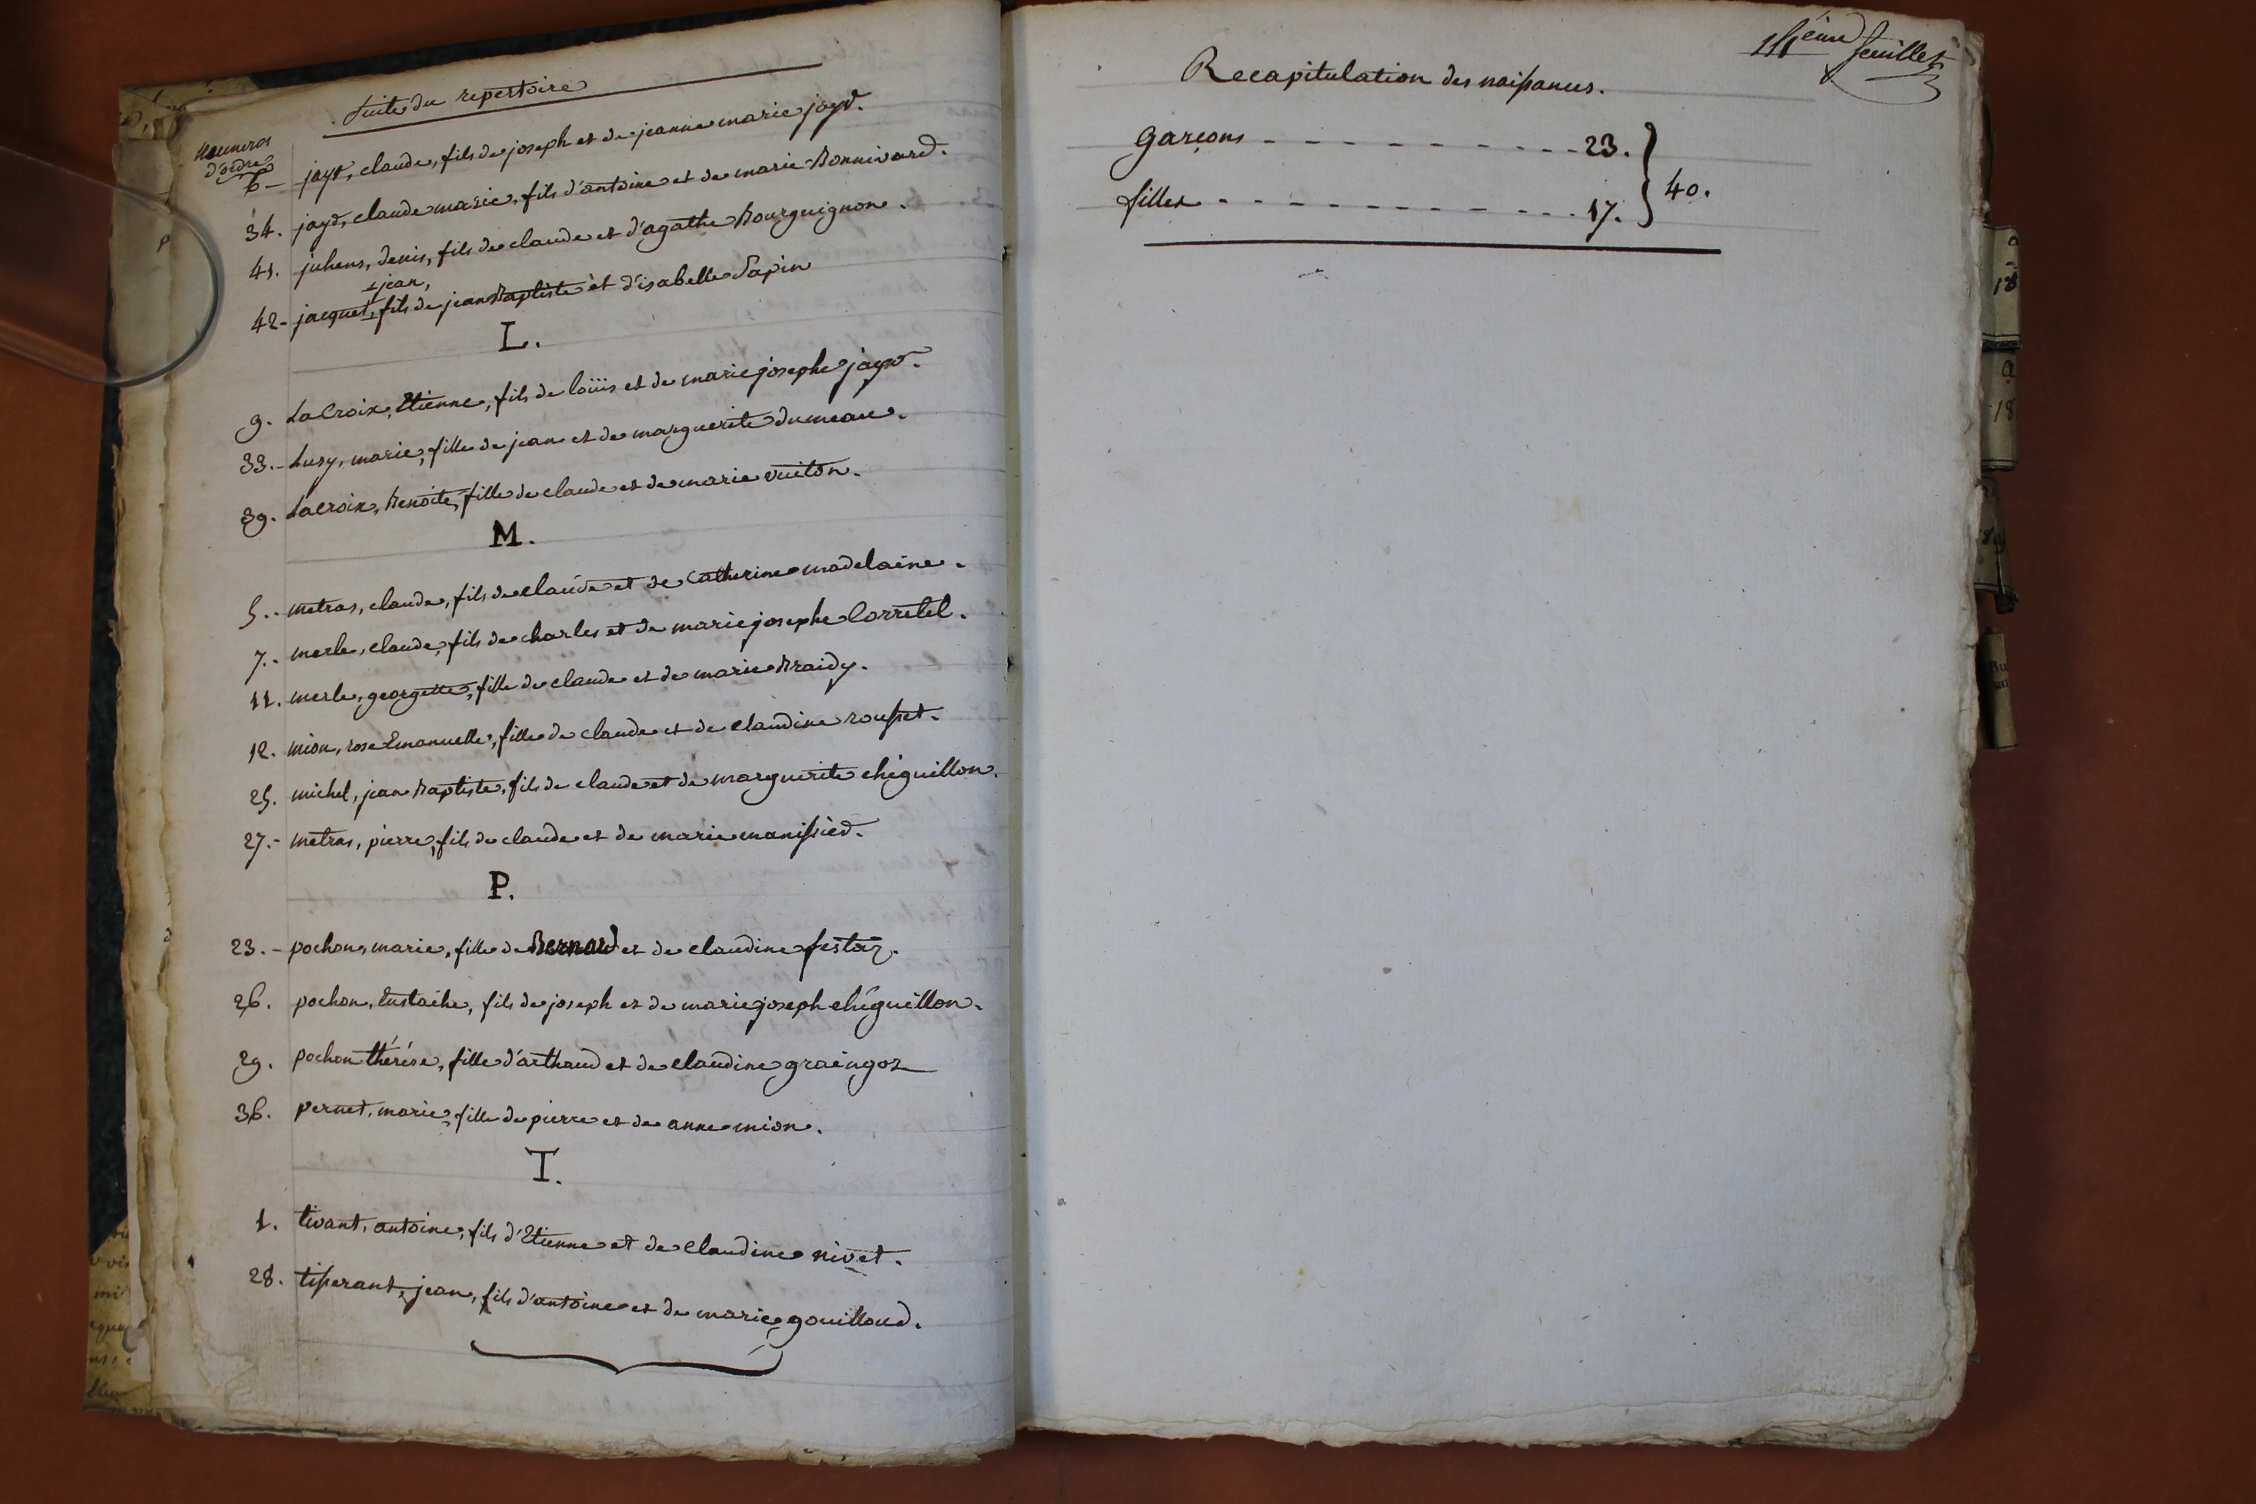 Suite du repertoire
Numeros
d'ordre
6 - jayr, claude, fils de joseph et de jeanne marie jayr.
34. jayr, claude marie, fils d'antoine et de marie Bonnivard.
41. juhens, denis, fils de claude et d'agathe Bourguignon.
jean,
42 - jacquet, fils de jean Baptiste et d'isabelle Sapin
L.
9. LaCroix, Etienne, fils de loüis et de marie josephe jayr.
33. - Lusy, marie, fille de jean et de marguerite dumeau.
39. Lacroix, Benoite, fille de claude et de marie vuiton.
M.
5. - metras, claude, fils de claude et de Catherine madelaine.
7. - merle, claude, fils de charles et de marie josephe Corretel.
11. merle, georgette, fille de claude et de marie Braidy.
12. mion, rose Emanuelle, fille de claude et de claudine rousset.
25. michel, jean Baptiste, fils de claude et de marguerite chéguillon.
27. - metras, pierre, fils de claude et de marie manissied.
P.
23. - pochon, marie, fille de Bernard et de claudine festaz.
26. pochon, Eustache, fils de joseph et de marie joseph chéguillon.
29. pochon thérése, fille d'arthaud et de claudine graingor
36. pernet, marie, fille de pierre et de anne mion.
T.
1. tivant, antoine, fils d'Etienne et de claudine nivet.
28. tisserant, jean, fils d'antoine et de marie gouilloud.
feuillet
Recapitulation des naissances.
Garçons - - - - - - - - - - 23.
40.
filles - - - - - - - - - - 17.
a
18
a
18